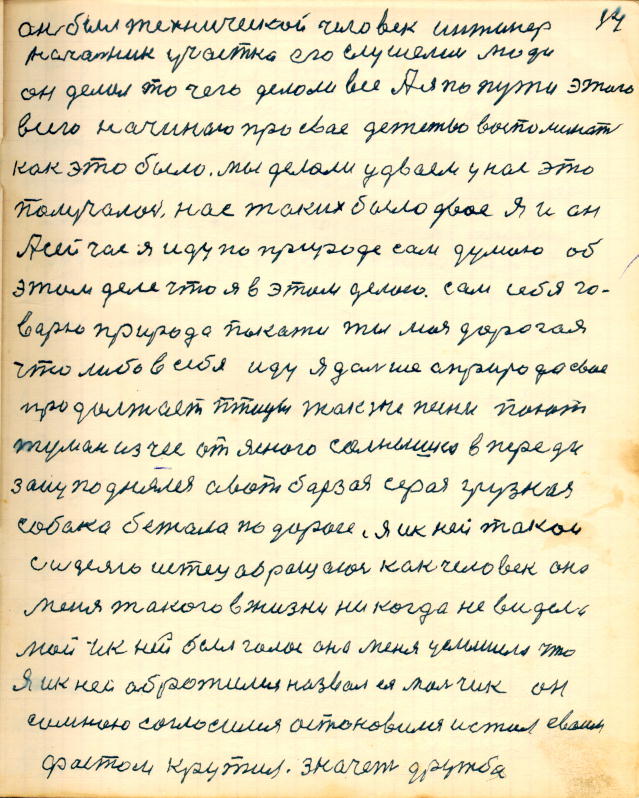 14
он был технический человек инжинер
началник участка его слушелии люди
он делал то чего делали все А я по пути этого
всего начинаю про свае детство воспоминат
как это было. мы делали у дваем у нас это
получалос. нас таких было двое я и он
А сейчас я иду по природе сам думаю об
этим деле что я в этом делаю. сам себя го-
варю природа покажи ты моя дорогая
что либо в себя иду я далше а природа свае
продолжает птицы так же песни поют
туман исчес от ясного солнышка в переди
заиц поднялся а вот барзая серая грузная
собака бежала по дороге. я и к ней такой
меня такого в жизни никогда не видел.
мой и к ней был голос она меня услышила что
я и к ней аброжился назвал ея малчик он
самною согласился остановился и стал сваим
фостом крутил. значет дружба